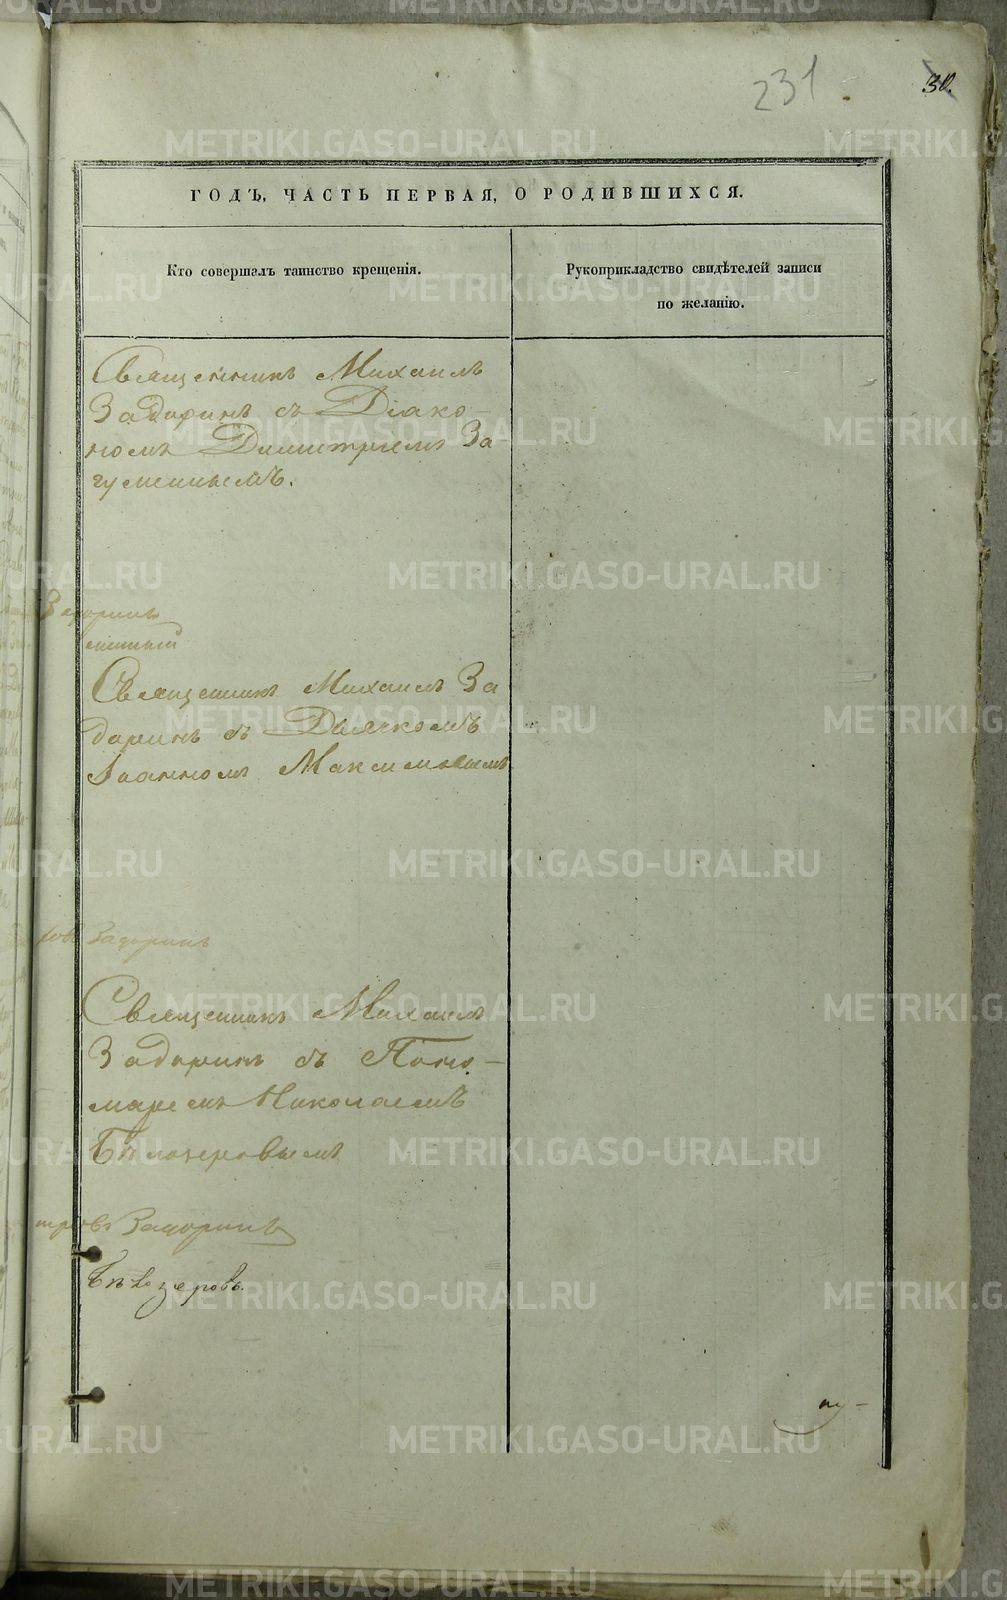 231
30.
ГОДЪ, ЧАСТЬ ПЕРВАЯ, О РОДИВШИХСЯ.
Кто совершалъ таинство крещенія.
Рукоприкладство свидѣтелей записи
по желанію.
Священникъ Михаилъ
Задоринъ съ Діако-
номъ Димитріемъ За-
гуменнымъ.
Задоринъ
Священникъ Михаилъ За
даринъ съ Дьячкомъ
Іоанномъ Максимовымъ
Задоринъ
Священникъ Михаилъ
Задоринъ съ Поно-
маремъ Николаемъ
Бѣлозеровымъ
Задоринъ
Бѣлозеровъ.
METRIKI.GASO-URAL.RU